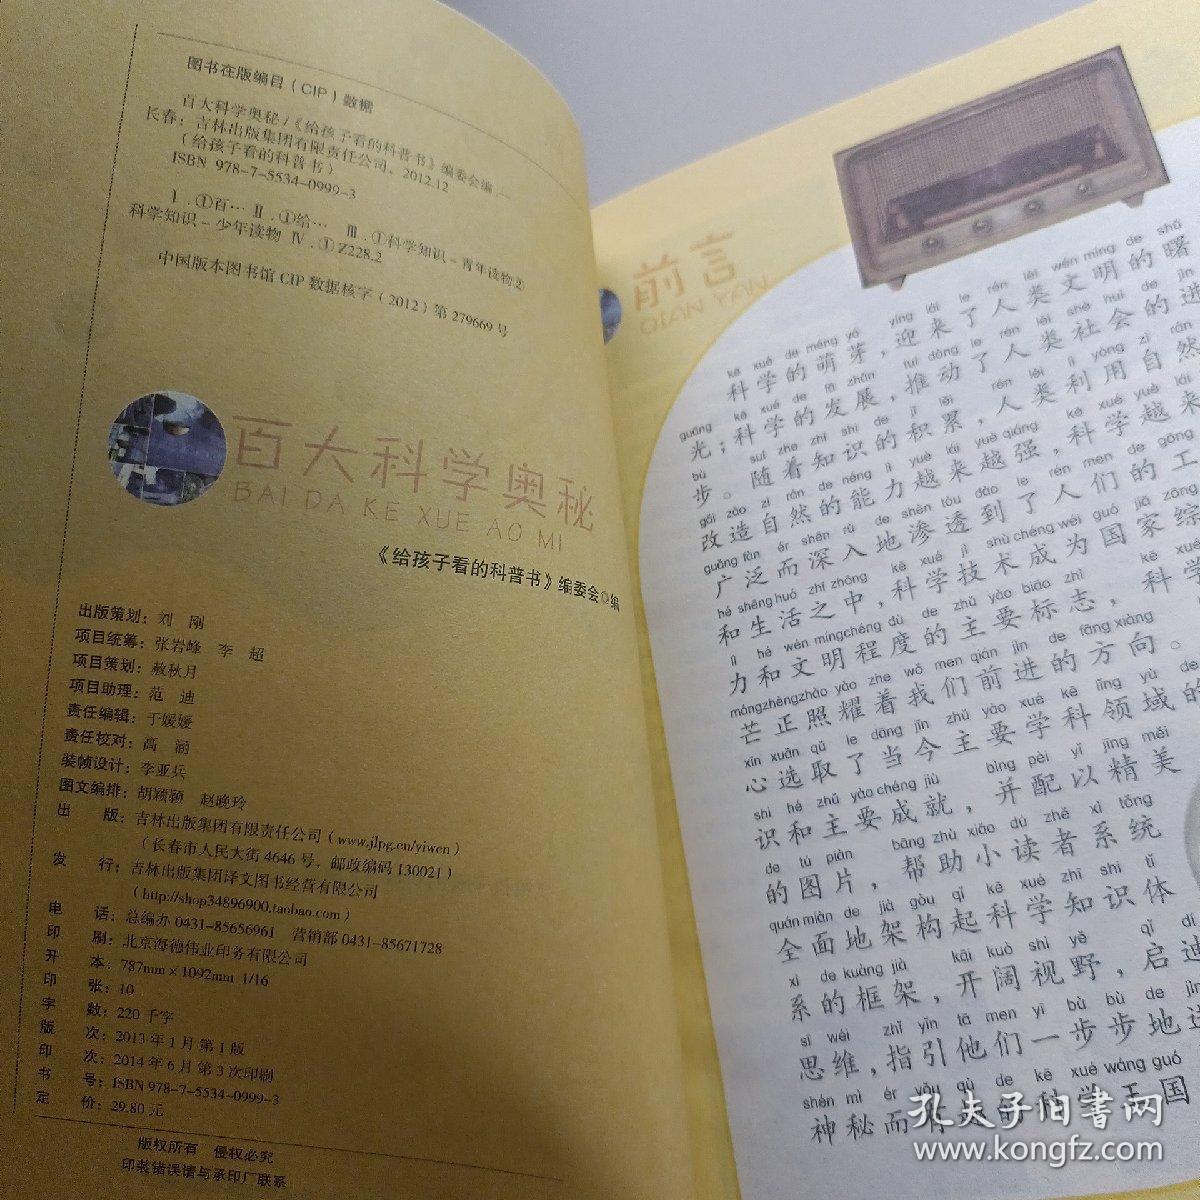 图书在版编目（CIP）数据
百大科学奥秘/《给孩子看的科普书》编委会编.—
长春：吉林出版集团有限责任公司，2012.12
（给孩子看的科普书）
ISBN 978-7-5534-0999-3
Ⅰ.①百… Ⅱ.①给… Ⅲ.①科学知识－青年读物②
科学知识－少年读物 Ⅳ.①Z228.2
中国版本图书馆CIP数据核字（2012）第279669号
百大科学奥秘
BAI DA KE XUE AO MI
《给孩子看的科普书》编委会◎编
出版策划：刘 刚
项目统筹：张岩峰 李 超
项目策划：赦秋月
项目助理：范 迪
责任编辑：于媛媛
责任校对：高 涵
装帧设计：李亚兵
图文编排：胡颖颖 赵晚玲
出 版：吉林出版集团有限责任公司（www.jlpg.cn/yiwen）
（长春市人民大街4646号，邮政编码130021）
发 行：吉林出版集团译文图书经营有限公司
（http://shop34896900.taobao.com）
电 话：总编办 0431-85656961 营销部 0431-85671728
印 刷：北京海德伟业印务有限公司
开 本：787mm×1092mm 1/16
印 张：10
字 数：220千字
版 次：2013年1月第1版
印 次：2014年6月第3次印刷
书 号：ISBN 978-7-5534-0999-3
定 价：29.80元
版权所有 侵权必究
印装错误请与承印厂联系
前言
QIAN YAN
kē xué de méng yá yíng lái le rén lèi wén míng de shǔ
科学的萌芽，迎来了人类文明的曙
guāng kē xué de fā zhǎn tuī dòng le rén lèi shè huì de jìn
光；科学的发展，推动了人类社会的进
bù suí zhe zhī shi de jī lěi rén lèi lì yòng zì rán
步。随着知识的积累，人类利用自然
gǎi zào zì rán de néng lì yuè lái yuè qiáng kē xué yuè lái
改造自然的能力越来越强，科学越来
guǎng fàn ér shēn rù de shèn tòu dào le rén men de gōng
广泛而深入地渗透到了人们的工
hé shēng huó zhī zhōng kē xué jì shù chéng wéi guó jiā zōng
和生活之中，科学技术成为国家综
lì hé wén míng chéng dù de zhǔ yào biāo zhì kē xué
力和文明程度的主要标志，科学
máng zhèng zhào yào zhe wǒ men qián jìn de fāng xiàng
芒正照耀着我们前进的方向。
xīn xuǎn qǔ le dāng jīn zhǔ yào xué kē lǐng yù de
心选取了当今主要学科领域的
shi hé zhǔ yào chéng jiù bìng pèi yǐ jīng měi
识和主要成就，并配以精美
de tú piàn bāng zhù xiǎo dú zhě xì tǒng
的图片，帮助小读者系统
quán miàn de jià gòu qǐ kē xué zhī shi tǐ
全面地架构起科学知识体
xì de kuàng jià kāi kuò shì yě qǐ dí
系的框架，开阔视野，启迪
sī wéi zhǐ yǐn tā men yī bù bù de jìn
思维，指引他们一步步地进
shén mì ér yǒu qù de kē xué wáng guó
神秘而有趣的科学王国
孔夫子旧书网
www.kongfz.com